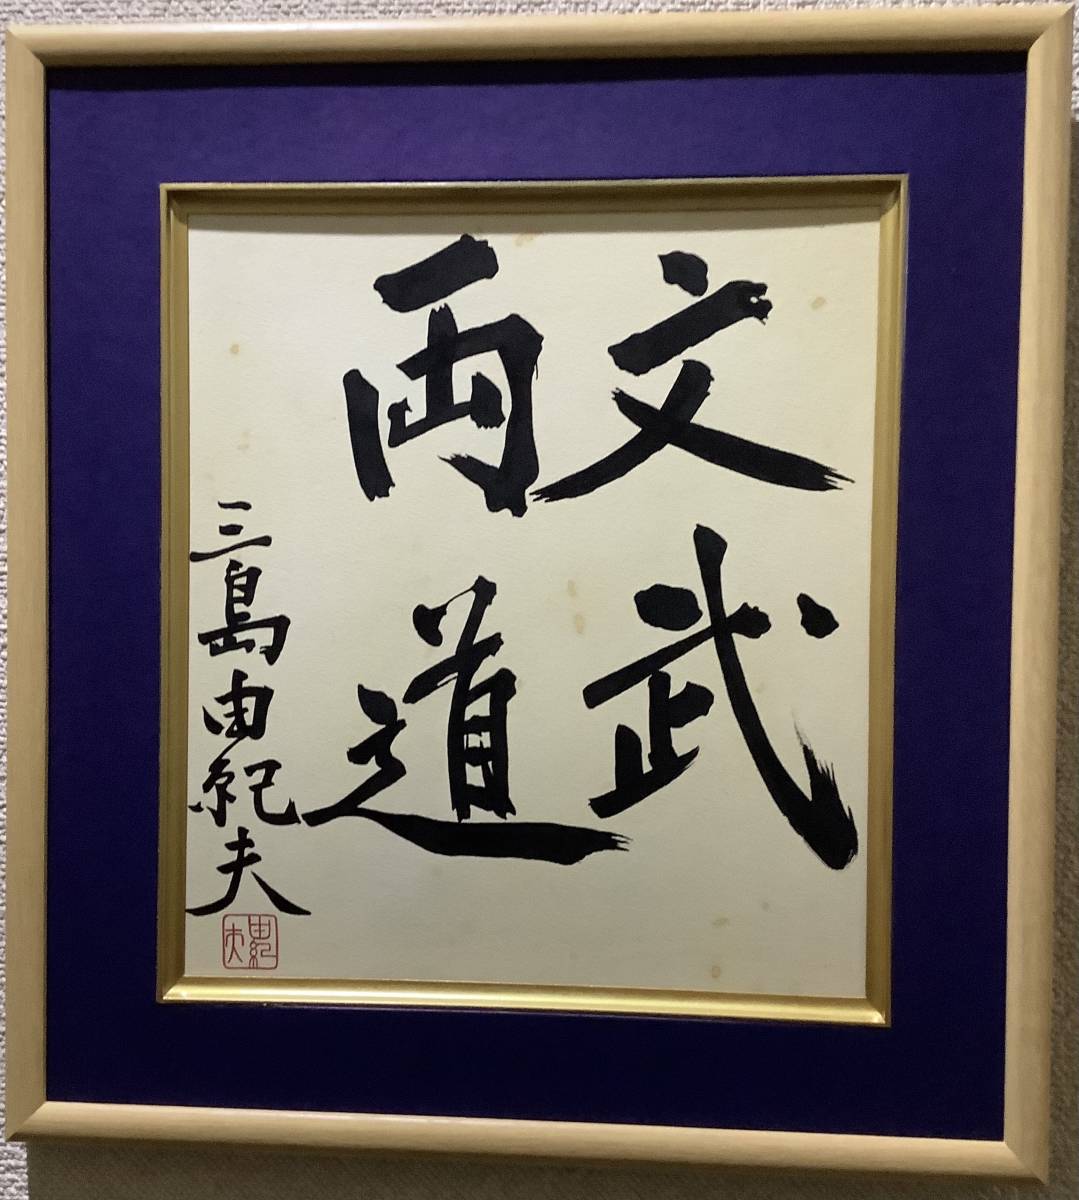 文武
両道
三島由紀夫
由紀夫